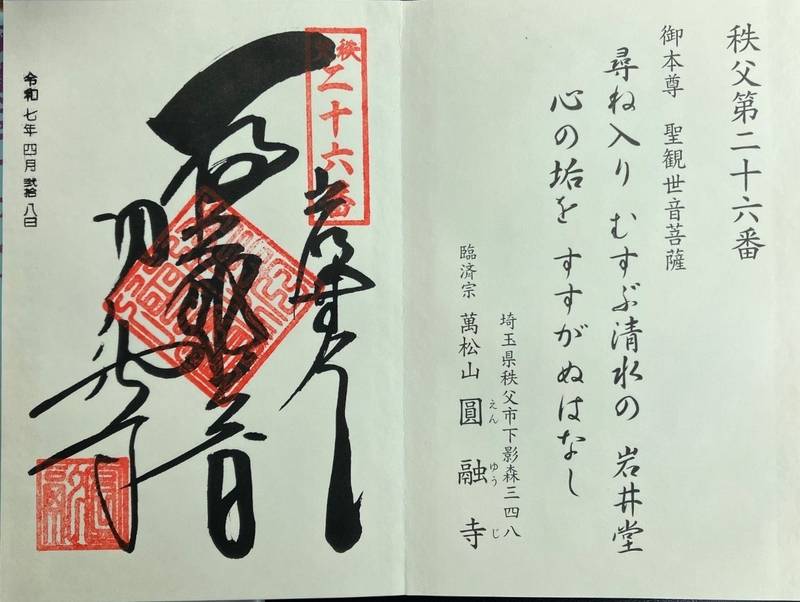 秩父第二十六番
御本尊 聖観世音菩薩
尋ね入り むすぶ清水の 岩井堂
心の垢を すすがぬはなし
埼玉県秩父市下影森三四八
臨済宗 萬松山 圓融寺
えん ゆう じ
秩父
二十六番
岩井堂
聖観世音
圓融寺
令和七年四月弐拾八日